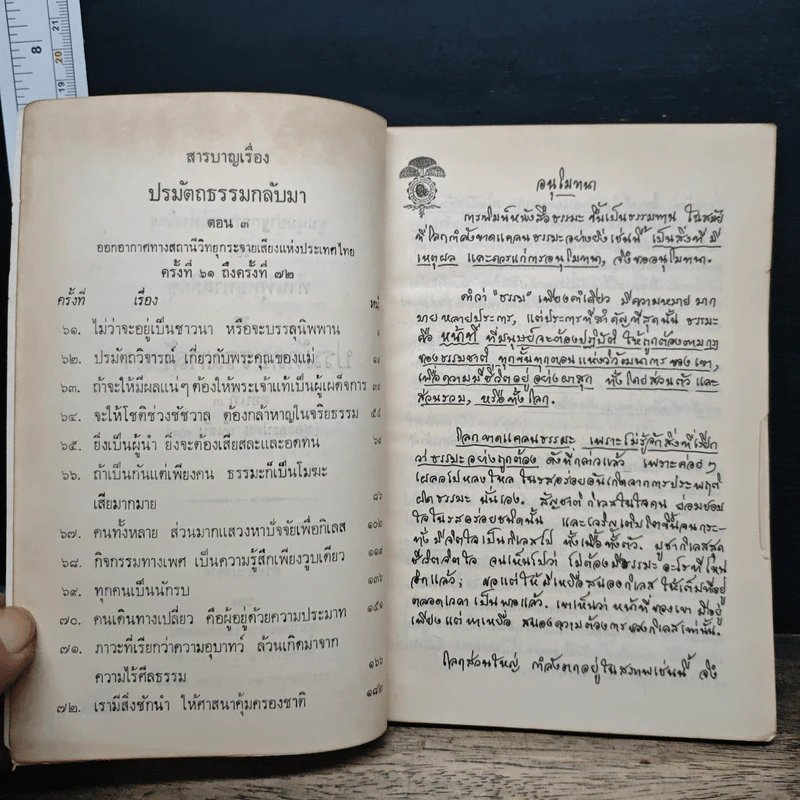 8
21
20
19
สารบาญเรื่อง
ปรมัตถธรรมกลับมา
ตอน ๓
ออกอากาศทางสถานีวิทยุกระจายเสียงแห่งประเทศไทย
ครั้งที่ ๖๑ ถึงครั้งที่ ๗๒
ครั้งที่ เรื่อง หน้า
๖๑. ไม่ว่าจะอยู่เป็นชาวนา หรือจะบรรลุนิพพาน ๑
๖๒. ปรมัตถวิจารณ์ เกี่ยวกับพระคุณของแม่
๖๓. ถ้าจะให้มีผลแน่ๆ ต้องให้พระเจ้าแท้เป็นผู้เผด็จการ
๖๔. จะให้โชติช่วงชัชวาล ต้องกล้าหาญในจริยธรรม
๖๕. ยิ่งเป็นผู้นำ ยิ่งจะต้องเสียสละและอดทน
๖๖. ถ้าเป็นกันแต่เพียงคน ธรรมะก็เป็นโมฆะ
เสียมากมาย ๘๖
๖๗. คนทั้งหลาย ส่วนมากแสวงหาปัจจัยเพื่อกิเลส ๑๐๒
๖๘. กิจกรรมทางเพศ เป็นความรู้สึกเพียงวูบเดียว ๑๑๙
๖๙. ทุกคนเป็นนักรบ ๑๓๖
๗๐. คนเดินทางเปลี่ยว คือผู้อยู่ด้วยความประมาท ๑๕๑
๗๑. ภาวะที่เรียกว่าความอุบาทว์ ล้วนเกิดมาจาก
ความไร้ศีลธรรม ๑๖๖
๗๒. เรามีสิ่งชักนำ ให้ศาสนาคุ้มครองชาติ ๑๘๒
อนุโมทนา
การพิมพ์หนังสือธรรมะ ขึ้นเป็นธรรมทาน ในสมัย
ที่โลกกำลังขาดแคลนธรรมะอย่างยิ่งเช่นนี้ เป็นสิ่งที่มี
เหตุผล และควรแก่การอนุโมทนา, จึงขออนุโมทนา.
คำว่า "ธรรม" เพียงคำเดียว มีความหมายมาก
มายหลายประการ, แต่ประการที่สำคัญที่สุดนั้น ธรรมะ
คือ หน้าที่ ที่มนุษย์จะต้องปฏิบัติ ให้ถูกต้องตามกฎ
ของธรรมชาติ ทุกขั้นทุกตอนแห่งวิวัฒนาการของเขา,
เพื่อความมีชีวิตอยู่อย่างผาสุก ทั้งโดยส่วนตัว และ
ส่วนรวม, หรือทั้งโลก.
โลกขาดแคลนธรรมะ เพราะไม่รู้จักสิ่งที่เรียก
ว่าธรรมะอย่างถูกต้อง ดังที่กล่าวแล้ว เพราะค่อยๆ
เผลอไปหลงใหล ในรสอร่อยอันเกิดจากการประพฤติ
ผิดธรรมะ นั่นเอง. สัญชาติกิเลสในใจคน ย่อมชอบ
ใจในรสอร่อยชนิดนั้น และเจริญเติบโตขึ้นจนกระ-
ทั่งมีจิตใจเป็นกิเลสไป ทั้งเนื้อทั้งตัว. บูชากิเลสสุด
ชีวิตจิตใจ จนเห็นไปว่า ไม่ต้องมีธรรมะอะไรที่ไหน
อีกแล้ว; ขอแต่ให้มีเหยื่อสนองกิเลส ให้เต็มที่อยู่
ตลอดเวลา เป็นพอแล้ว. เขาเห็นว่า หน้าที่ของเขา มีอยู่
เพียงแต่หาเหยื่อ สนองความต้องการของกิเลสเท่านั้น.
โลกส่วนใหญ่ กำลังตกอยู่ในสภาพเช่นนี้ จึง